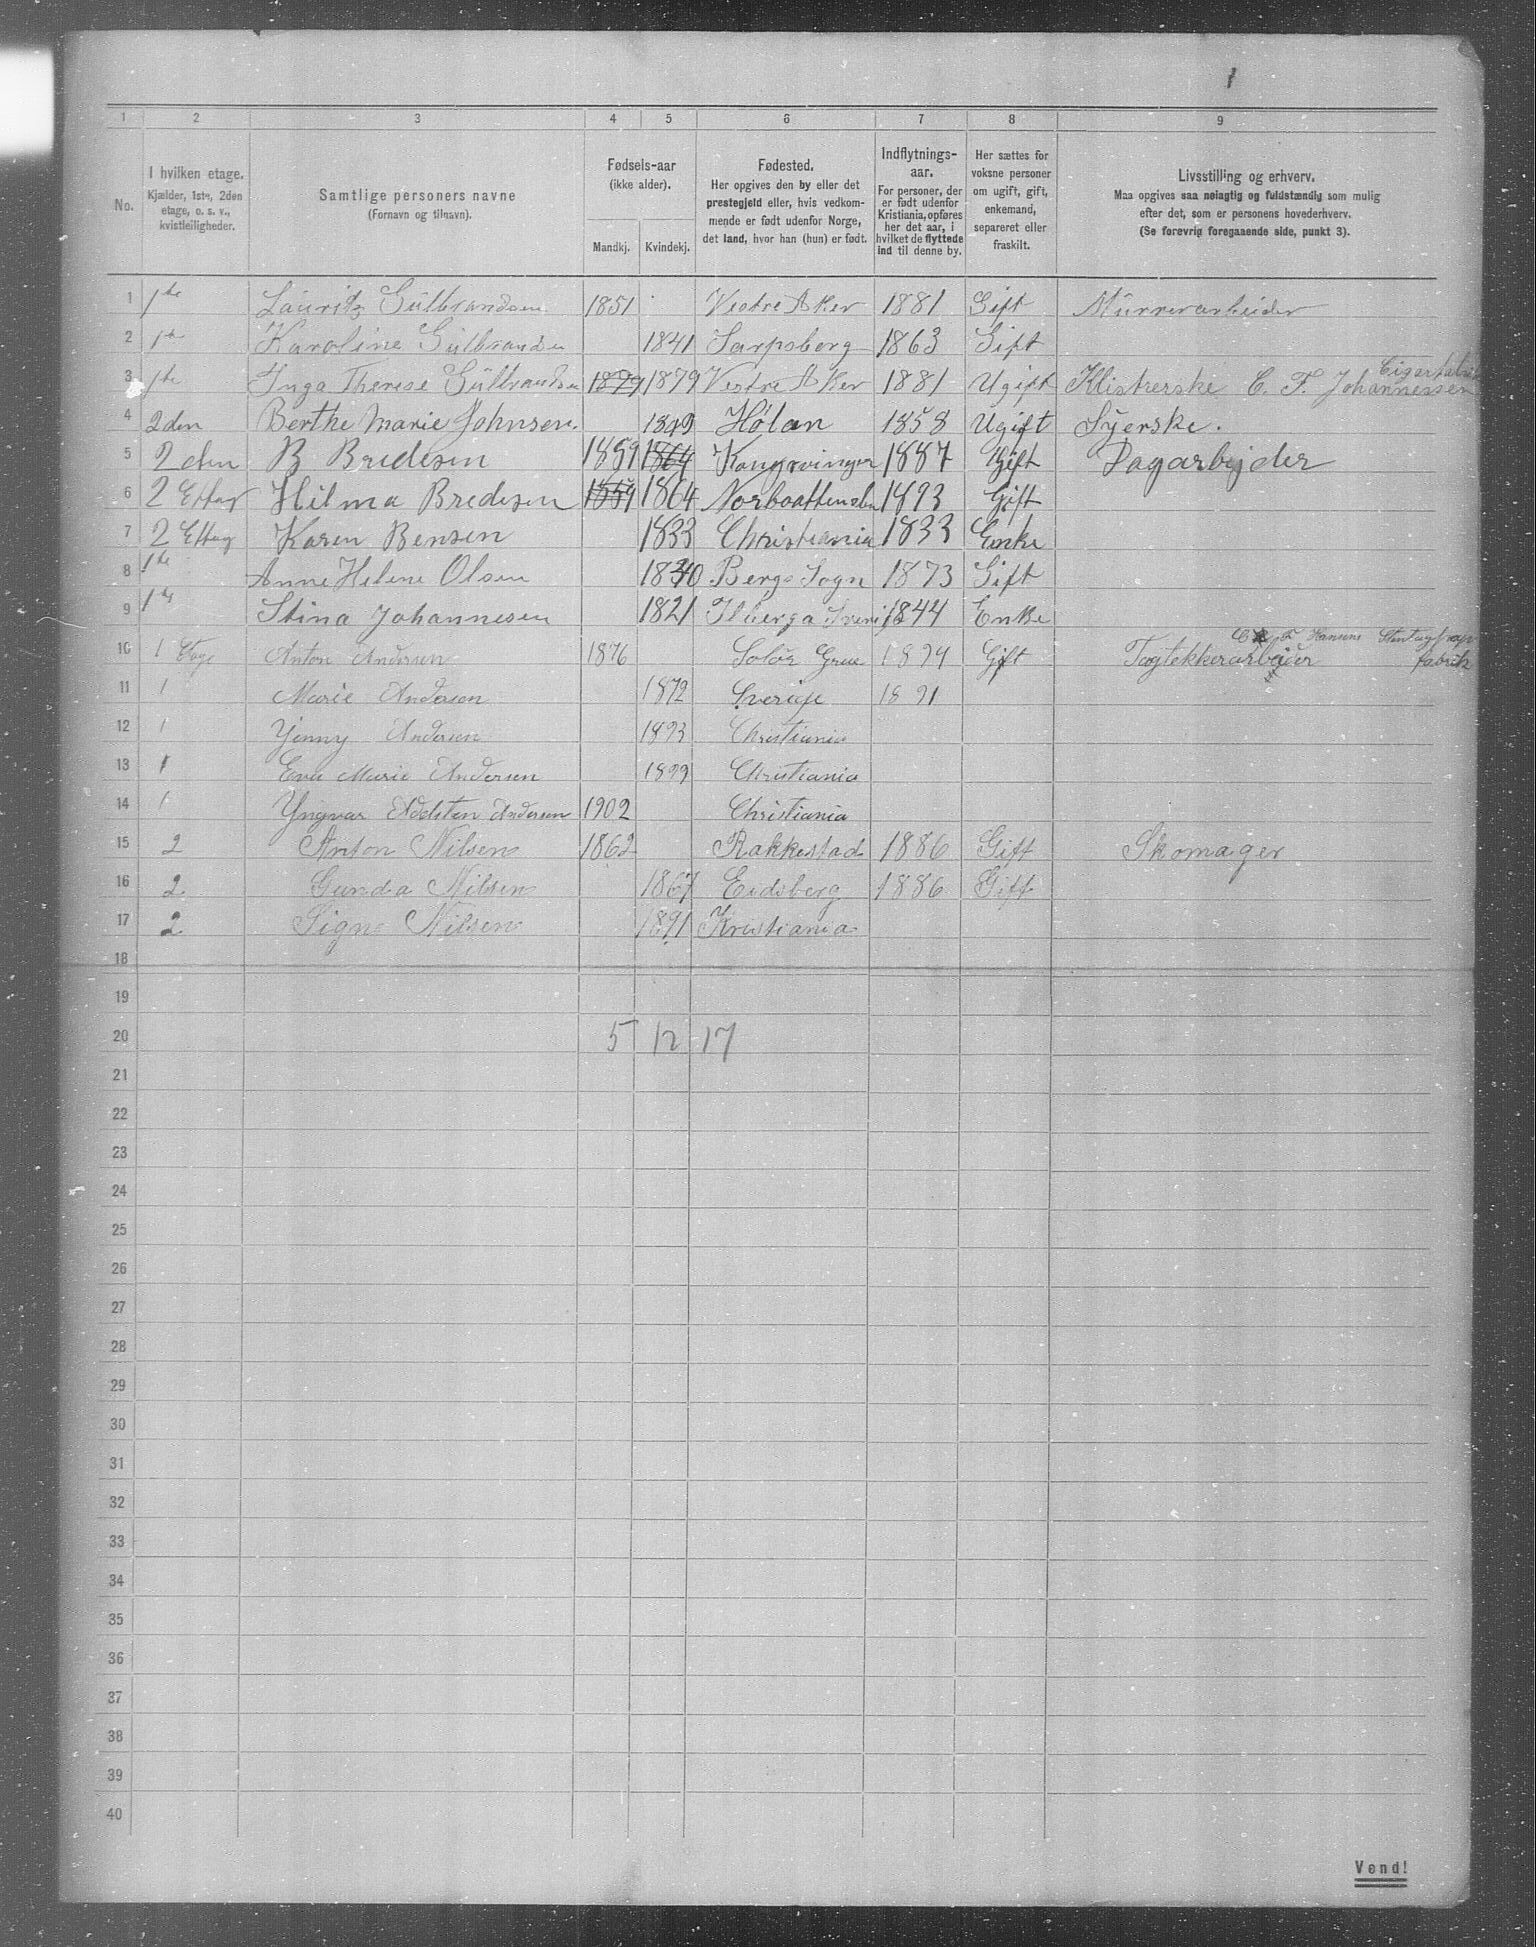 1
1 2 3 4 5 6 7 8 9
No.
I hvilken etage.
Kjælder, 1ste, 2den
etage, o. s. v.,
kvistleiligheder.
Samtlige personers navne
(Fornavn og tilnavn).
Fødsels-aar
(ikke alder).
Mandkj. Kvindekj.
Fødested.
Her opgives den by eller det
prestegjeld eller, hvis vedkom-
mende er født udenfor Norge,
det land, hvor han (hun) er født.
Indflytnings-
aar.
For personer, der
er født udenfor
Kristiania, opføres
her det aar, i
hvilket de flyttede
ind til denne by.
Her sættes for
voksne personer
om ugift, gift,
enkemand,
separeret eller
fraskilt.
Livsstilling og erhverv.
Maa opgives saa nøiagtig og fuldstændig som mulig
efter det, som er personens hovederhverv.
(Se forøvrig foregaaende side, punkt 3).
1 1ste Lauritz Gulbrandsen 1851 Vestre Aker 1881 Gift Murerarbeider
2 1ste Karoline Gulbrandsen 1841 Sarpsborg 1863 Gift
3 1ste Inga Therese Gulbrandsen 1879 1879 Vestre Aker 1881 Ugift Klistrerske C. F. Johannessen
4 2den Berthe Marie Johnsen. 1849 Hølan 1858 Ugift Syerske.
5 2 den B Bredesen 1859 1864 Kongsvinger 1887 Gift Dagarbejder
6 2 Ettag Hilma Bredesen 1859 1864 1893 Gift
7 2 Ettag Karen Bensen 1833 Christiania 1833 Enke
8 1ste Anne Helene Olsen 1840 Bergs Sogn 1873 Gift
9 1ste Stina Johannesen 1821 1844 Enke
10 1 Etage Anton Andersen 1876 Solør Grue 1894 Gift Tagtekkerarbeider fabrik
11 1 Marie Andersen 1872 Sverige 1891
12 1 Yenny Andersen 1893 Christiania
13 1 Eva Marie Andersen 1899 Christiania
14 1 Yngvar Adelsten Andersen 1902 Christiania
15 2 Anton Nilsen 1862 Rakkestad 1886 Gift Skomager
16 2 Gunda Nilsen 1867 Eidsberg 1886 Gift
17 2 Signe Nilsen 1891 Kristiania
18
19
20 5 12 17
21
22
23
24
25
26
27
28
29
30
31
32
33
34
35
36
37
38
39
40
Vend!